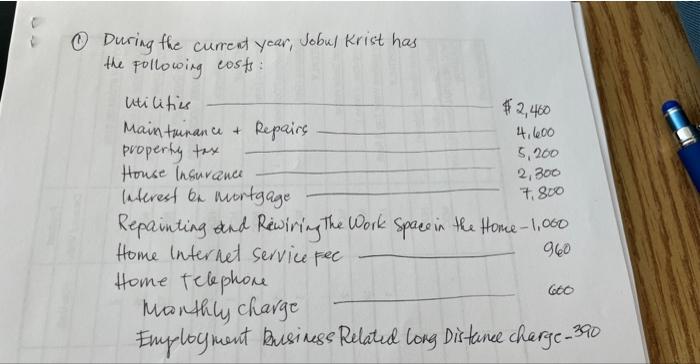 ① During the current year, Jobul Krist has
the following costs:
Utilities $2,460
Maintainance + Repairs 4,600
property tax 5,200
House Insurance 2,300
Interest on mortgage 7,800
Repainting and Rewiring The Work Space in the Home - 1,060
Home Internet Service Fee 960
Home telephone
Monthly charge 600
Employment Business Related Long Distance charge - 390